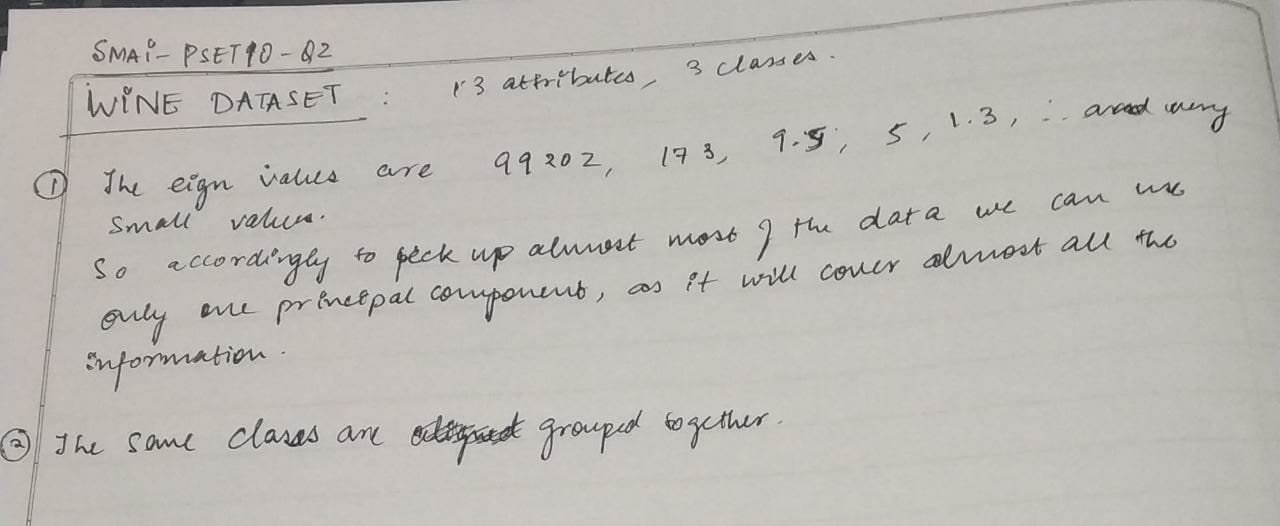 SMAI - PSET 10 - Q2
WINE DATASET : 13 attributes, 3 classes.
① The eign values are 99202, 173, 9.5, 5, 1.3, ∴ and very
small values.
So accordingly to pick up almost most of the data we can use
only one principal component, as it will cover almost all the
information.
② The same classes are grouped together.